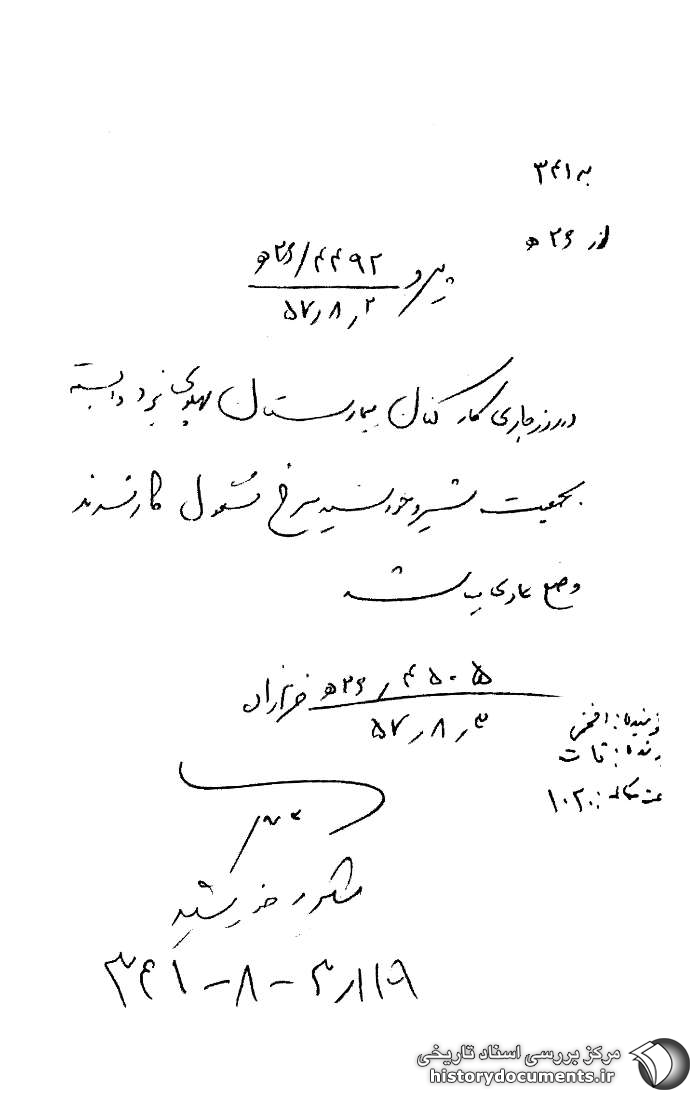 به ۳۴۱
از ۲۶ ه
پیرو ۴۴۹۲/۲۶ه
۵۷٫۸٫۲
در روز جاری کارکنان بیمارستان پهلوی یزد وابسته
بجمعیت شیر و خورشید سرخ مشغول کار شدند
وضع عادی میباشد
۴۵۰۵٫۲۶ه فرازان
۵۷٫۸٫۳
گوینده: افخمی
گیرنده:
ساعت مکالمه: ۱۰۲۰
شیر و خورشید
۳۴۱-۸-
مرکز بررسی اسناد تاریخی
historydocuments.ir